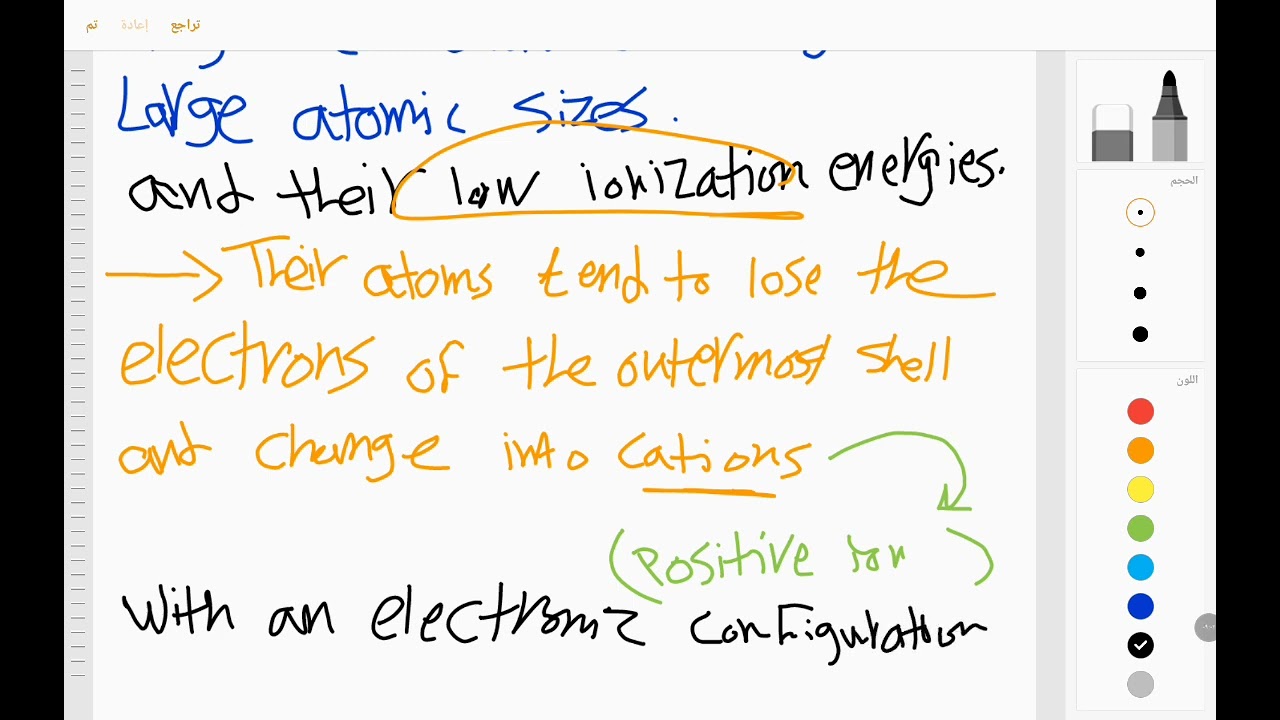 تم إعادة تراجع
Large atomic sizes.
and their low ionization energies.
Their atoms tend to lose the
electrons of the outermost shell
and change into cations
(Positive ion)
With an electronic configuration
الحجم
اللون